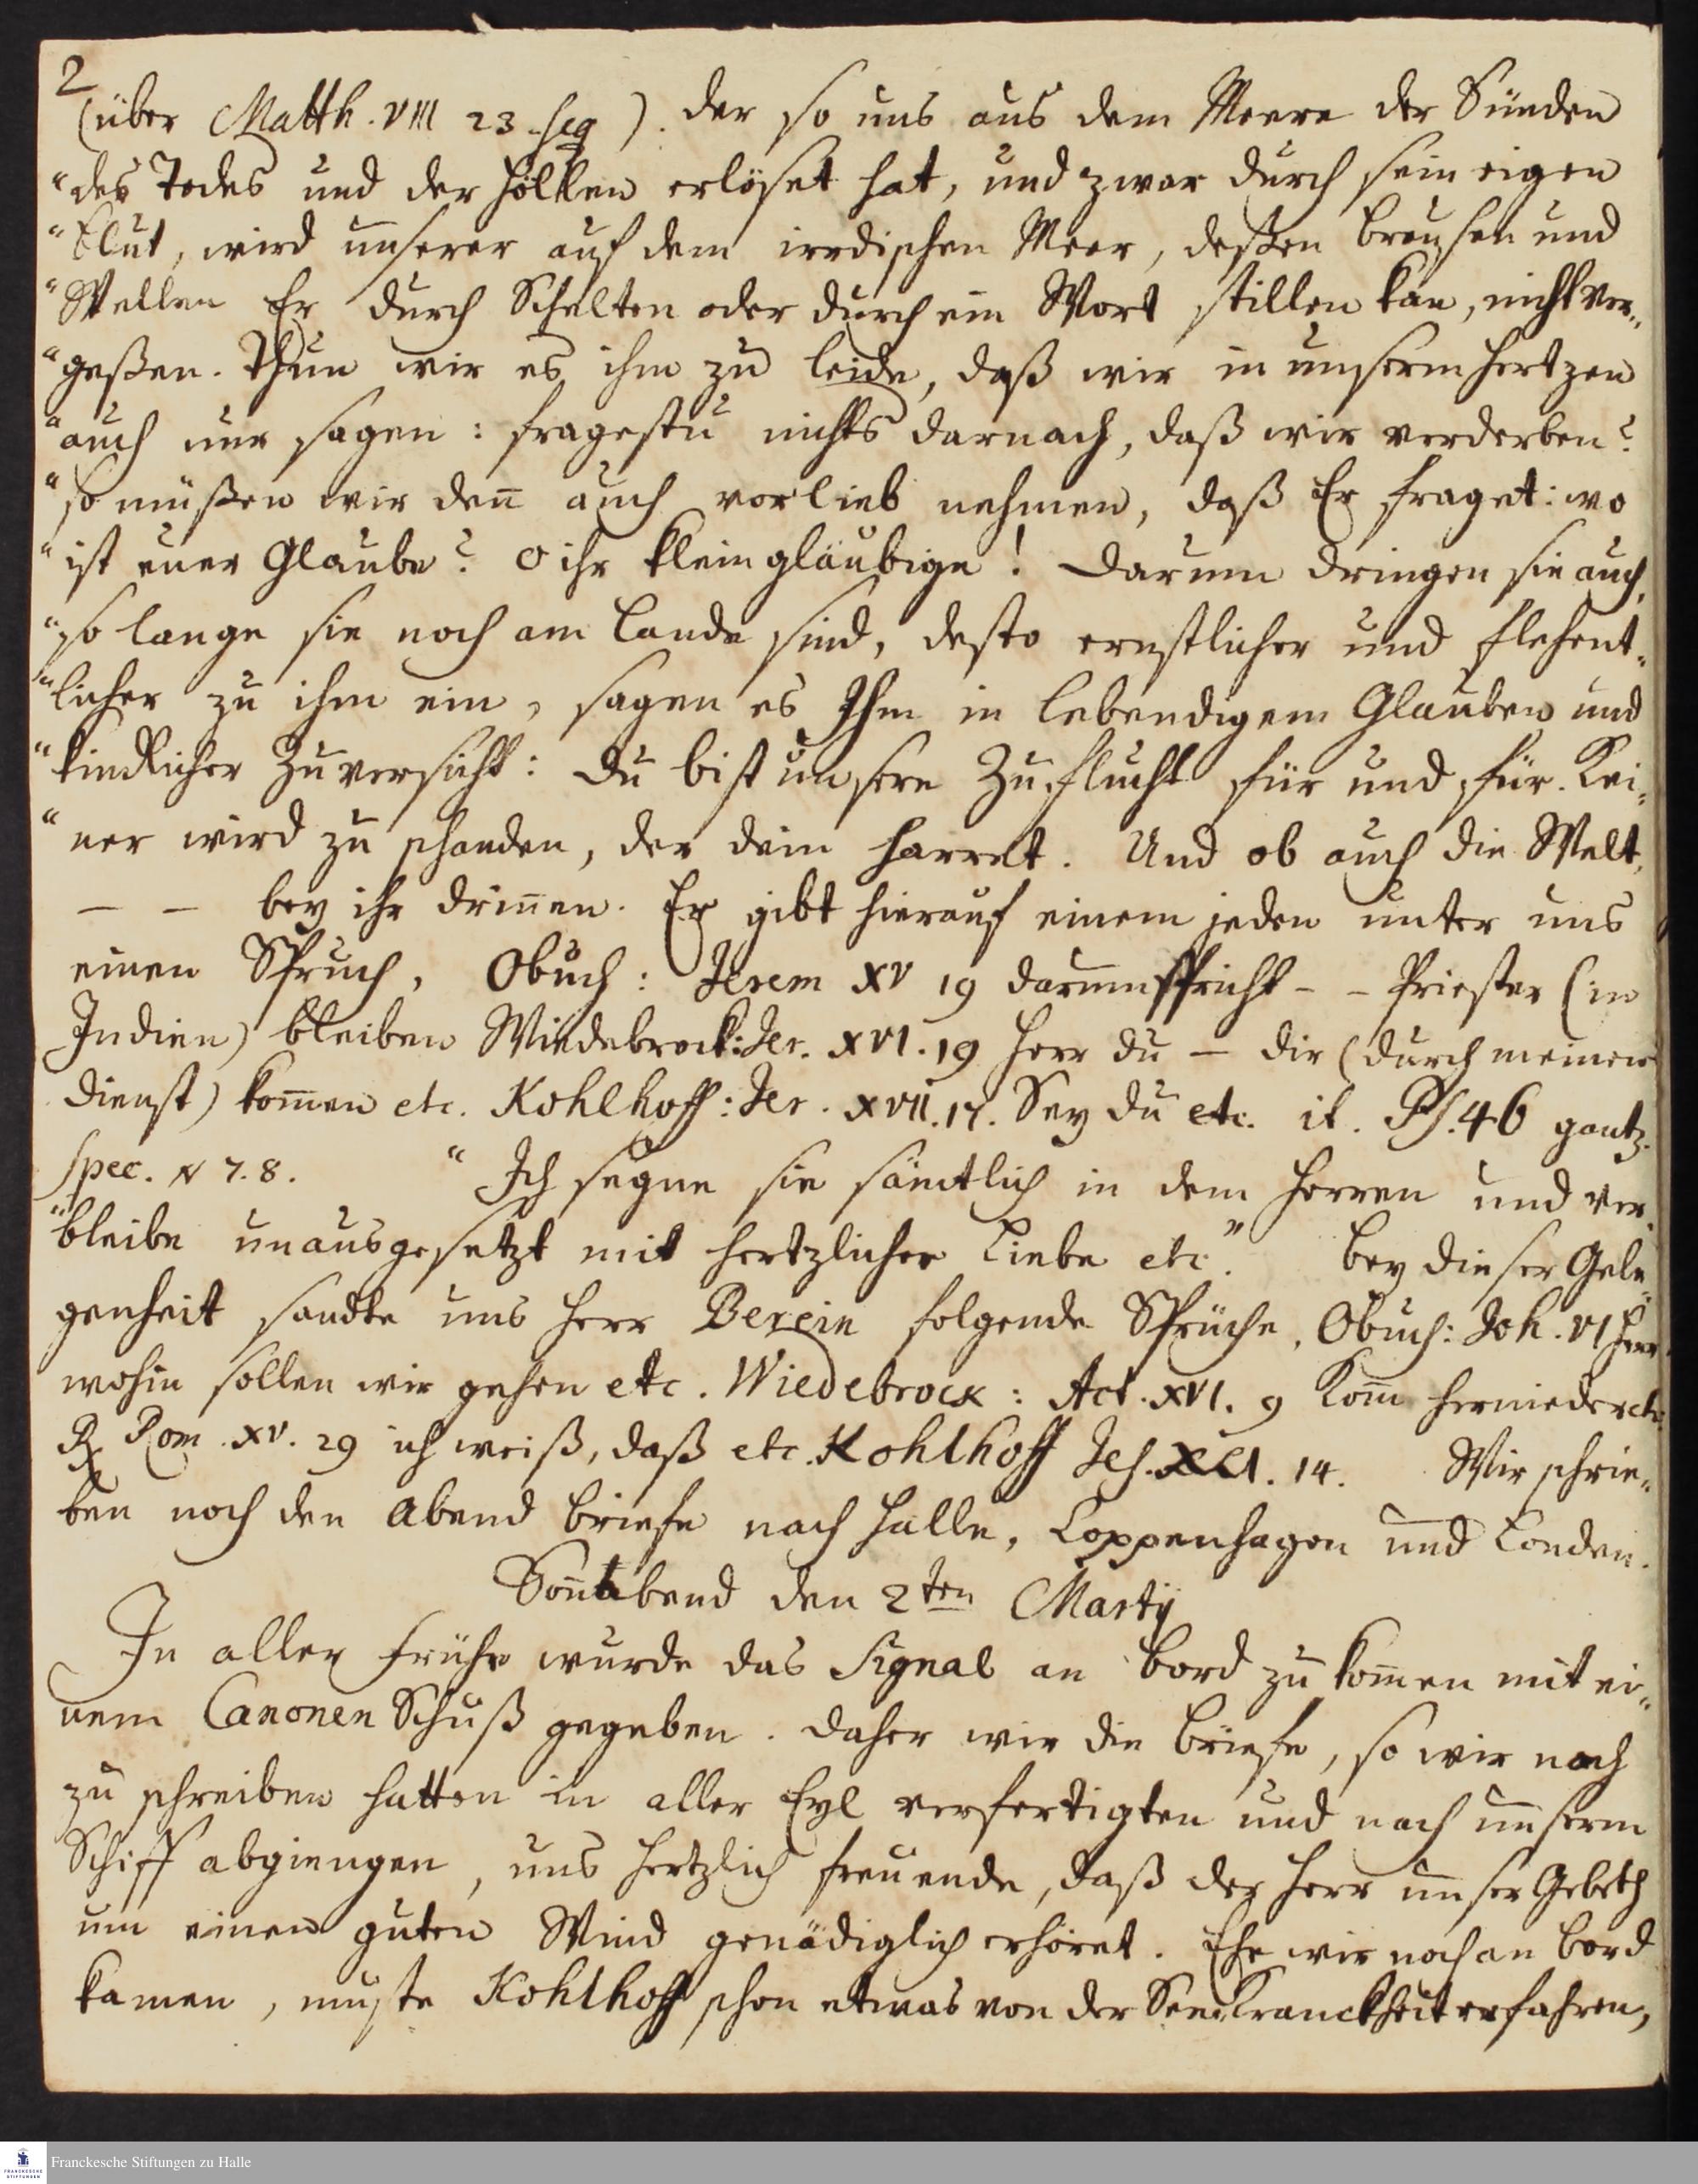 2
(über Matth. VIII 23. seq). der so uns aus dem Meere der Sünden
"des Todes und der Höllen erlöset hat, und zwar durch sein eigen
"Blut, wird unserer auf dem irrdischen Meer, deßen brausen und
"Wellen Er durch Schelten oder durch ein Wort stillen kan, nicht ver„
"geßen. Thun wir es ihm zu leide, daß wir in unserm Hertzen
"auch nur sagen: fragestu nichts darnach, daß wir verderben?
"so müßen wir deñ auch vorlieb nehmen, daß Er fraget: wo
"ist euer Glaube? O ihr kleingläubige! Darum dringen sie auch,
"so lange sie noch am Lande sind, desto ernstlicher und flehent„
"licher zu ihm ein, sagen es Ihm in lebendigem Glauben und
"kindlicher Zuversicht: Du bist unsere Zuflucht für und für. Kei„
"ner wird zu schanden, der dein harret. Und ob auch die Welt,
— — bey ihr driñen. Er gibt hierauf einem jeden unter uns
einen Spruch, Obuch: Jerem XV 19 darum spricht - - Priester (in
Indien) bleiben Wiedebrock: Jer. XVI. 19 Herr du — dir (durch meinen
Dienst) kom̃en etc. Kohlhoff: Jer. XVII. 17. Sey du etc. it. Ps. 46 gantz.
spec. v 7. 8. "Ich segne sie sämtlich in dem Herren und ver„
"bleibe unausgesetzt mit hertzlicher Liebe etc." Bey dieser Gele„
genheit sandte uns Herr Berein folgende Sprüche, Obuch: Joh. VI Herr
wohin sollen wir gehen etc. Wiedebrock: Act. XVI. 9 Kom̃ hernieder etc.
R Rom. XV. 29 ich weiß, daß etc. Kohlhoff Jes. XLI. 14. Wir schrie„
ben noch den Abend Briefe nach Halle, Coppenhagen und Londen.
Soñabend den 2ten Martij
In aller Frühe wurde das Signal an Bord zu kom̃en mit ei„
nem Canonen Schuß gegeben. Daher wir die Briefe, so wir noch
zu schreiben hatten in aller Eyl verfertigten und nach unserm
Schiff abgiengen, uns hertzlich freuende, daß der Herr unser Gebeth
um einen guten Wind genädiglich erhöret. Ehe wir noch an Bord
kamen, muste Kohlhoff schon etwas von der See Kranckheit erfahren,
Franckesche Stiftungen zu Halle